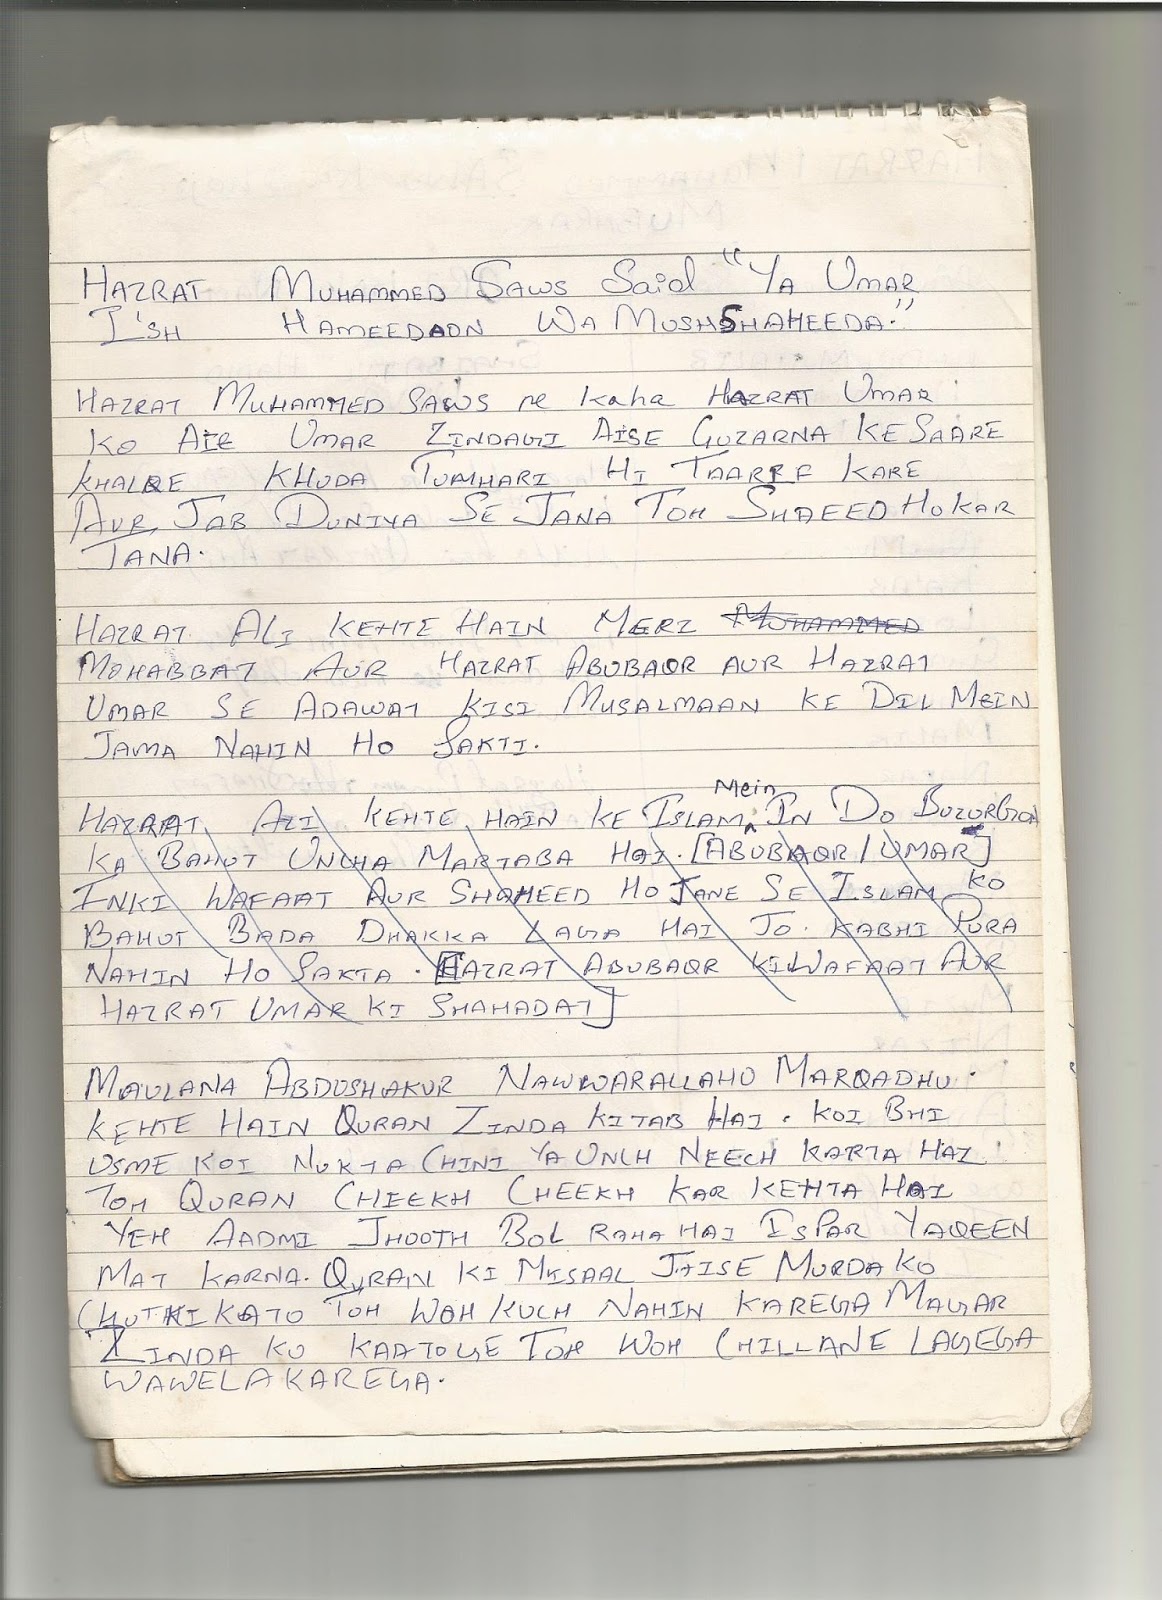 HAZRAT MUHAMMED SAWS Said "YA UMAR
I'SH HAMEEDAON WA MUSHSHAHEEDA."
HAZRAT MUHAMMED SAWS ne kaha HAZRAT UMAR
KO AIE UMAR ZINDAGI AISE GUZARNA KE SAARE
KHALQE KHUDA TUMHARI HI TAAREF KARE
AUR JAB DUNIYA SE JANA TOH SHAEED HOKAR
JANA.
HAZRAT ALI KEHTE HAIN MERI MUHAMMED
MOHABBAT AUR HAZRAT ABUBAQR AUR HAZRAT
UMAR SE ADAWAT KISI MUSALMAAN KE DIL MEIN
JAMA NAHIN HO SAKTI.
HAZRAT ALI KEHTE HAIN KE ISLAM Mein IN DO BUZURGON
KA BAHUT UNCHA MARTABA HAI. [ABUBAQR / UMAR]
INKI WAFAAT AUR SHAHEED HO JANE SE ISLAM KO
BAHUT BADA DHAKKA LAGA HAI JO KABHI PURA
NAHIN HO SAKTA. [HAZRAT ABUBAQR KI WAFAAT AUR
HAZRAT UMAR KI SHAHADAT]
MAULANA ABDUSHAKUR NAWWARALLAHU MARQADHU.
KEHTE HAIN QURAN ZINDA KITAB HAI. KOI BHI
USME KOI NUKTA CHINI YA UNCH NEECH KARTA HAI
TOH QURAN CHEEKH CHEEKH KAR KEHTA HAI
YEH AADMI JHOOTH BOL RAHA HAI IS PAR YAQEEN
MAT KARNA. QURAN KI MISAAL JAISE MURDA KO
CHUTKI KATO TOH WOH KUCH NAHIN KAREGA MAGAR
ZINDA KO KAATOGE TOH WOH CHILLANE LAGEGA
WAWELA KAREGA.